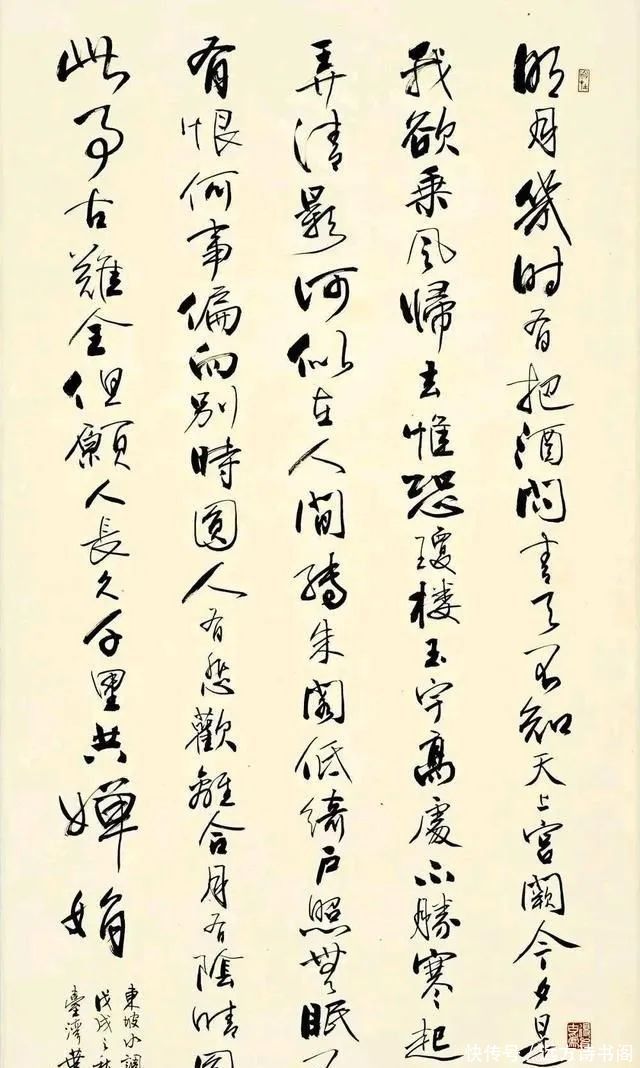 明月幾时有把酒問青天不知天上宮闕今夕是
我欲乘风歸去惟恐瓊楼玉宇高處不勝寒起
弄清影何似在人間轉朱閣低綺戶照無眠不
有恨何事偏向别時圓人有悲歡離合月有陰晴圓
此事古難全但願人長久千里共嬋娟
東坡水調
戊戌之秋
臺灣葉
快传号/方诗书阁